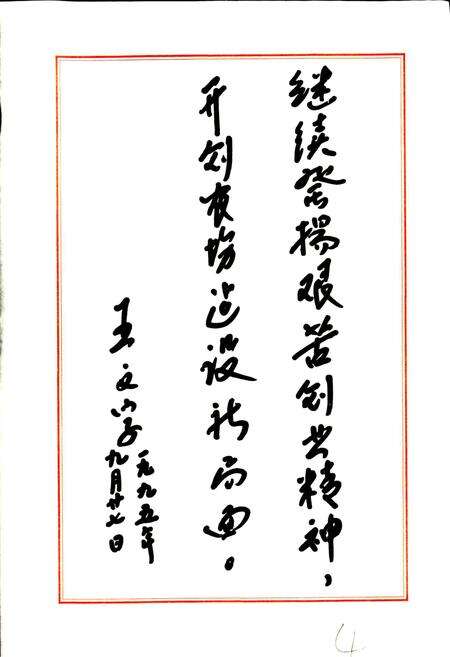 继续發揚艰苦创业精神，
开创农场建设新局面。
王文学
一九九五年
九月廿七日